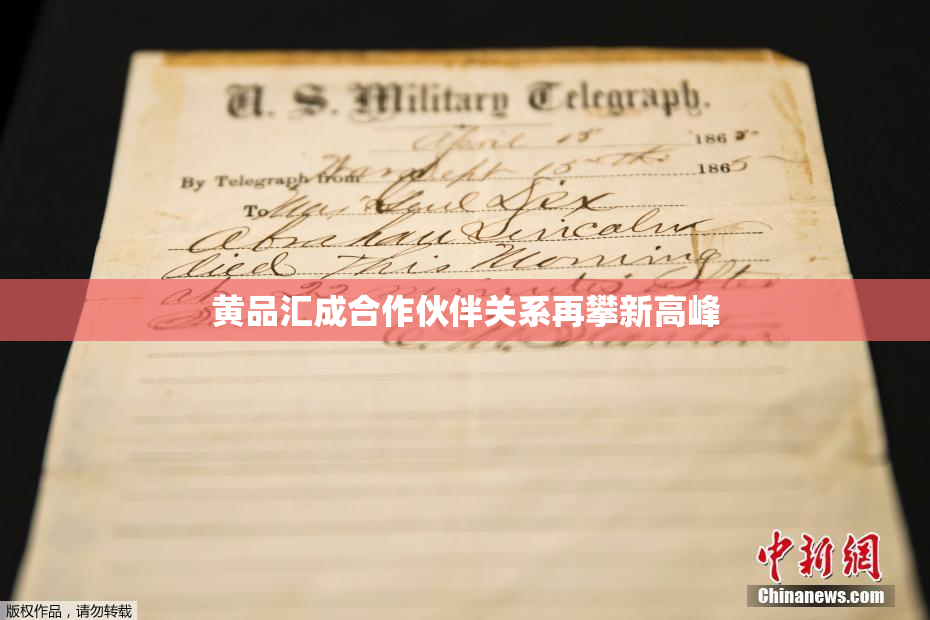 U. S. Military Telegraph.
April 15 1865
By Telegraph from War Dept 15th 1865
To Maj Genl Dix
Abraham Lincoln
died This Morning
at 22 minutes after
黄品汇成合作伙伴关系再攀新高峰
E. M. Stanton
中新网
Chinanews.com
版权作品，请勿转载